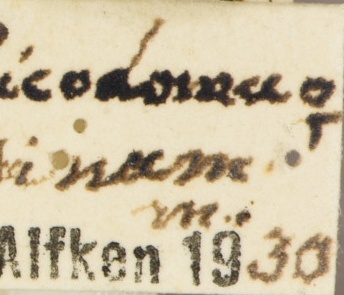 icodomus
inam
m.
Alfken 1930